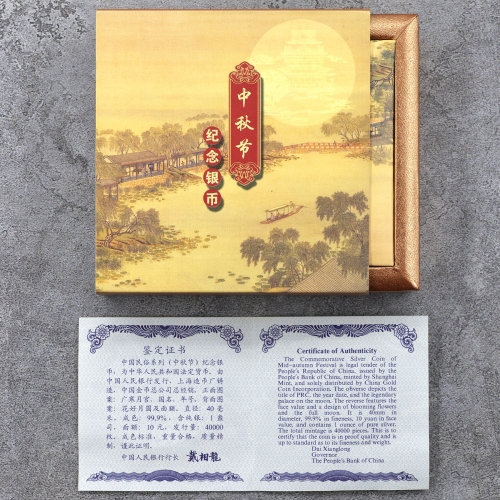 中秋节
纪念银币
鉴定证书
中国民俗系列（中秋节）纪念银
币，为中华人民共和国法定货币，由
中国人民银行发行，上海造币厂铸
造，中国金币总公司总经销。正面图
案：广寒月宫、国名、年号，背面图
案：花好月圆及面额。直径：40 毫
米，成色：99.9%，含纯银：1 盎
司，面额：10 元，发行量：40000
枚，成色标准，重量合格，质量精
制，谨此证明。
中国人民银行行长 戴相龙
Certificate of Authenticity
The Commemorative Silver Coin of
Mid-autumn Festival is legal tender of the
People's Republic of China, issued by the
People's Bank of China, minted by Shanghai
Mint, and solely distributed by China Gold
Coin Incorporation. The obverse depicts the
title of PRC, the year date, and the legendary
palace on the moon. The reverse features the
face value and a design of blooming flowers
and the full moon. It is 40mm in
diameter, 99.9% in fineness, 10 yuan in face
value, and contains 1 ounce of pure silver.
The total mintage is 40000 pieces. This is to
certify that the coin is in proof quality and is
up to standard as to its fineness and weight.
Dai Xianglong
Governor
The People's Bank of China